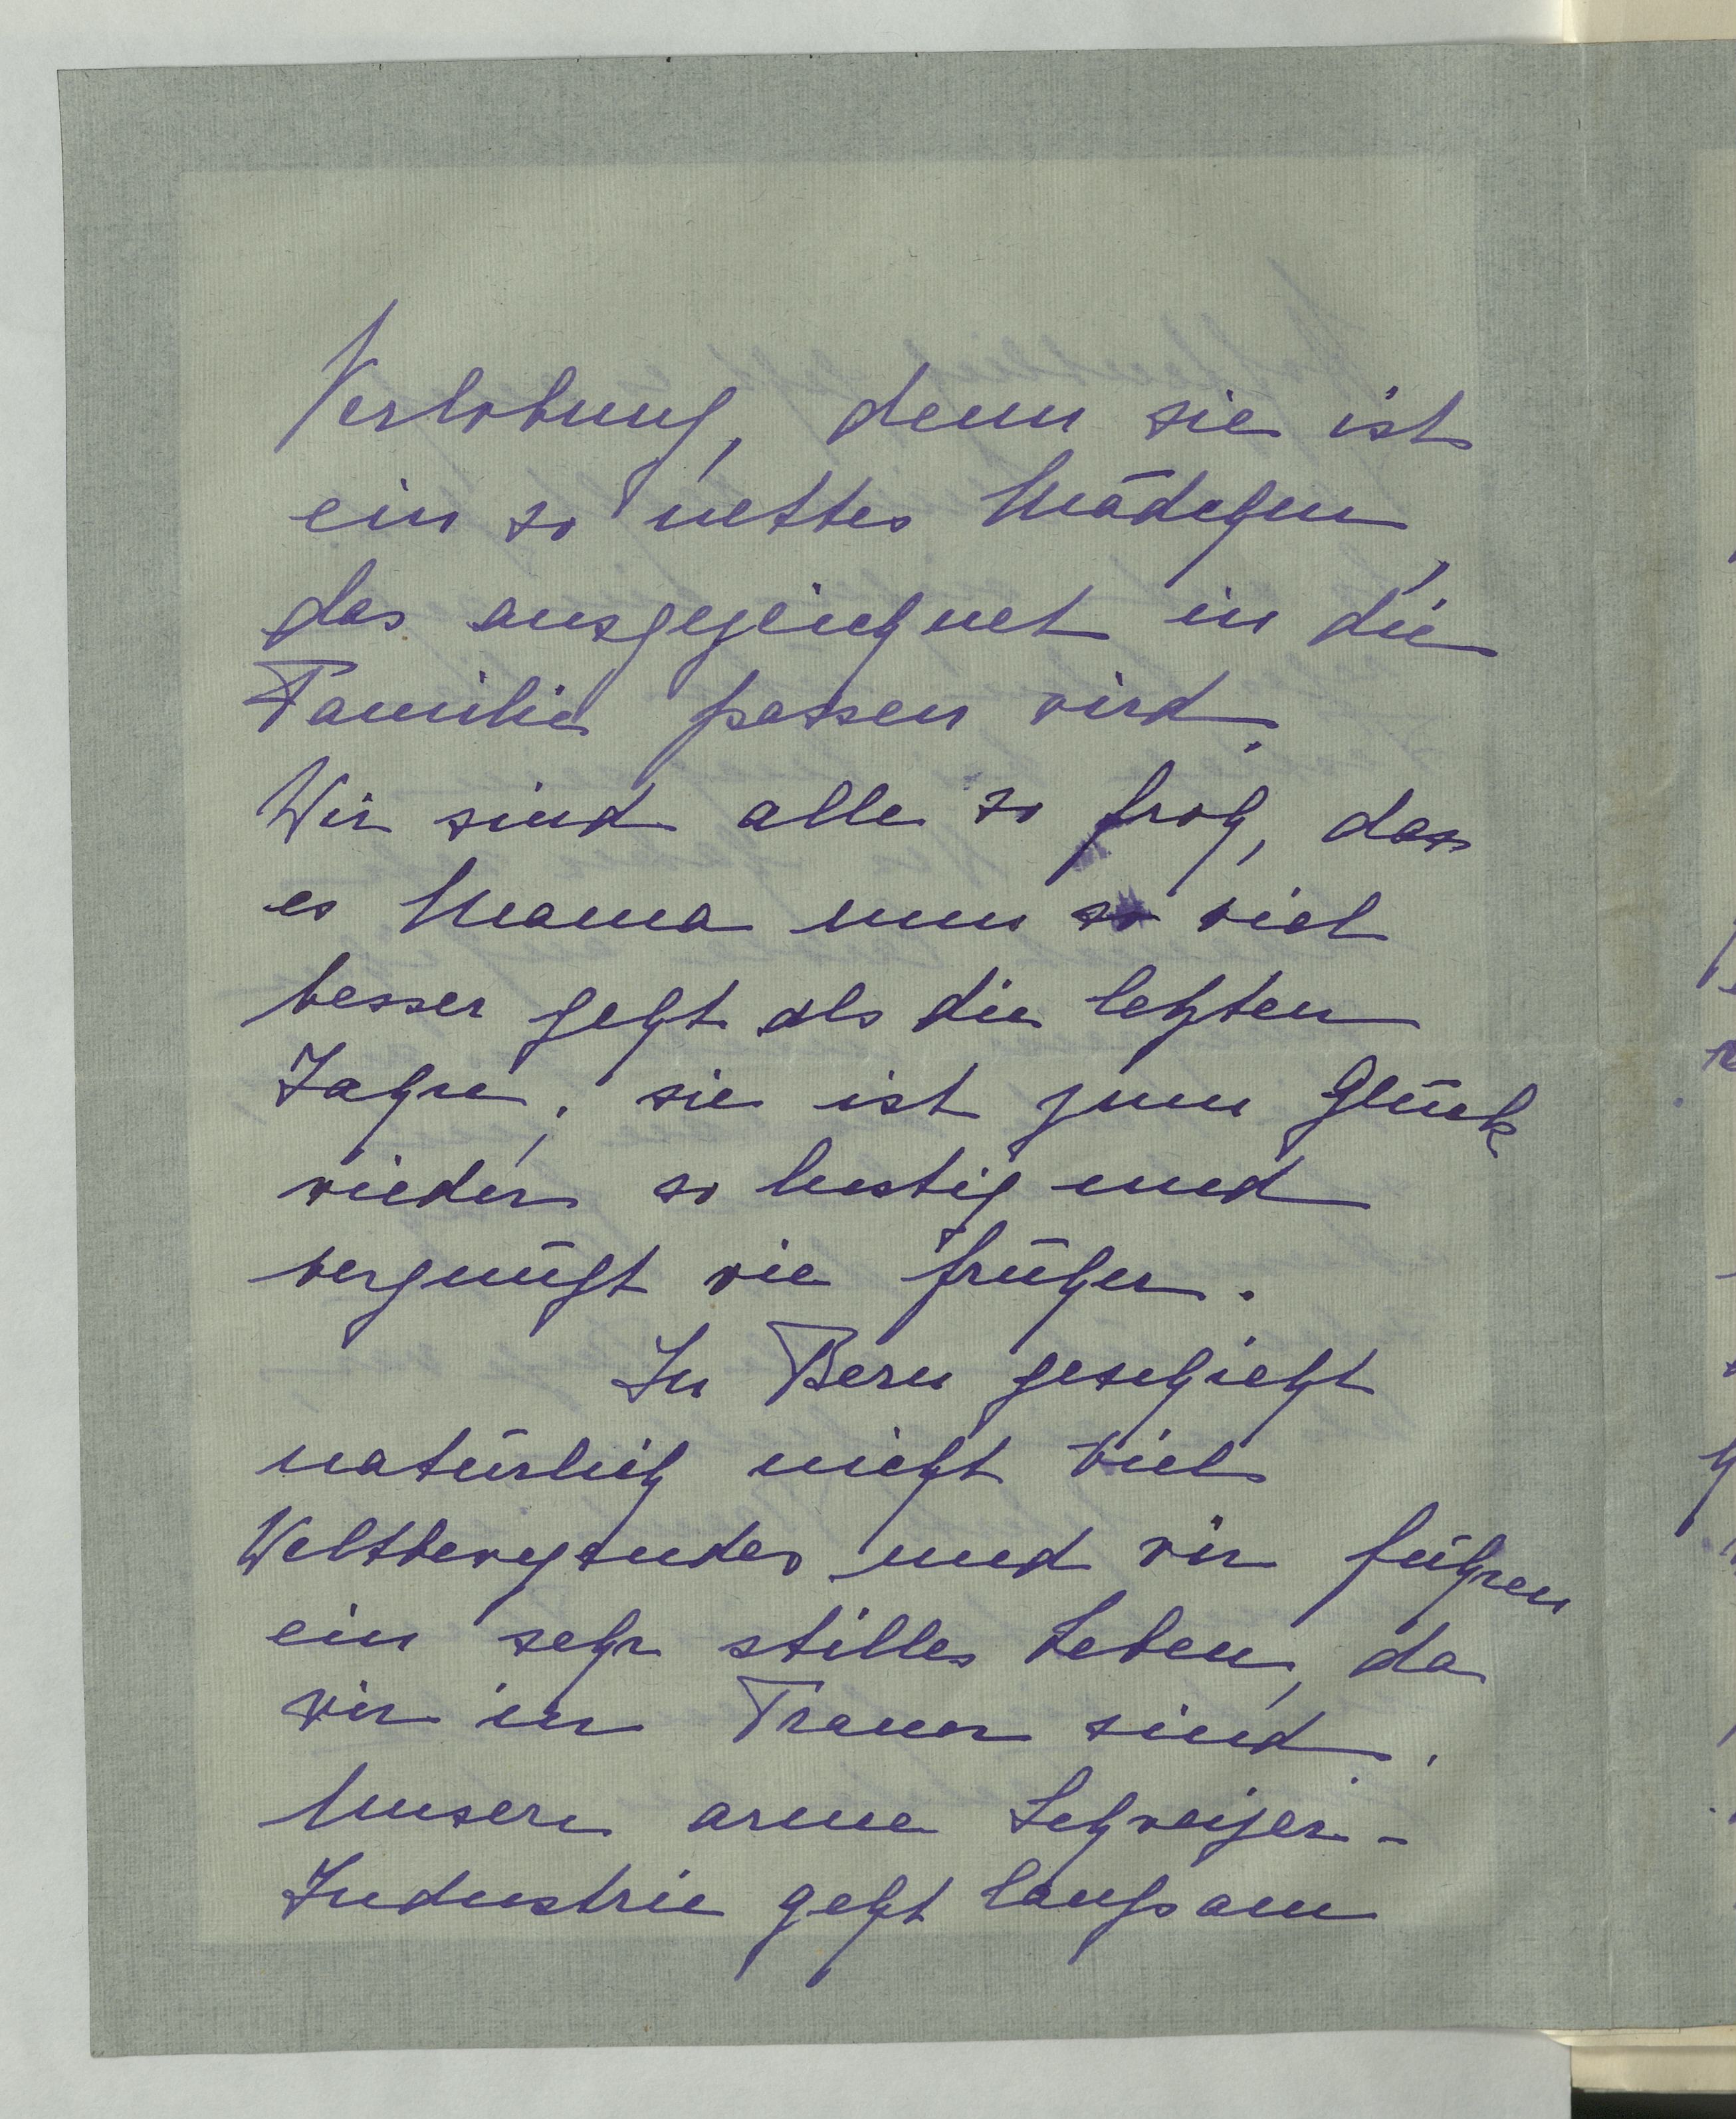 Verlobung, denn sie ist
ein so nettes Mädchen,
das ausgezeichnet in die
Familie passen wird.
Wir sind alle so froh, dass
es Mama nun so viel
besser geht als die letzten
Jahre; sie ist zum Glück
wieder so lustig und
vergnügt wie früher.
In Bern geschieht
natürlich nicht viel
Weltbewegendes und wir führen
ein sehr stilles Leben, da
wir in Trauer sind.
Unsere arme Schweizer-
Industrie geht langsam